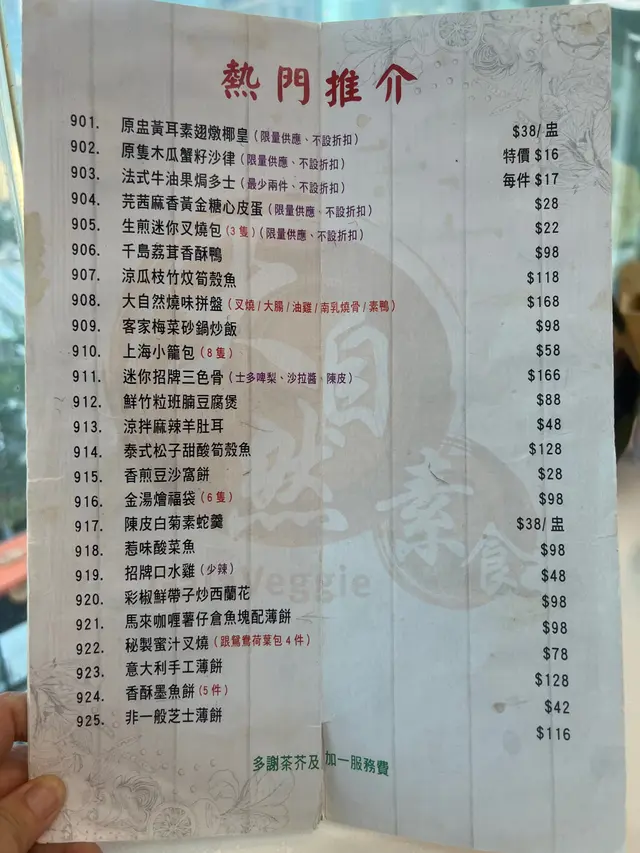 熱門推介
901. 原盅黃耳素翅燉椰皇(限量供應、不設折扣) $38/盅
902. 原隻木瓜蟹籽沙律(限量供應、不設折扣) 特價 $16
903. 法式牛油果焗多士(最少兩件、不設折扣) 每件 $17
904. 芫茜麻香黃金糖心皮蛋(限量供應、不設折扣) $28
905. 生煎迷你叉燒包(3隻)(限量供應、不設折扣) $22
906. 千島荔茸香酥鴨 $98
907. 涼瓜枝竹炆筍殼魚 $118
908. 大自然燒味拼盤(叉燒/大腸/油雞/南乳燒骨/素鴨) $168
909. 客家梅菜砂鍋炒飯 $98
910. 上海小籠包(8隻) $58
911. 迷你招牌三色骨(士多啤梨、沙拉醬、陳皮) $166
912. 鮮竹粒班腩豆腐煲 $88
913. 涼拌麻辣羊肚耳 $48
914. 泰式松子甜酸筍殼魚 $128
915. 香煎豆沙窩餅 $28
916. 金湯燴福袋(6隻) $98
917. 陳皮白菊素蛇羹 $38/盅
918. 惹味酸菜魚 $98
919. 招牌口水雞(少辣) $48
920. 彩椒鮮帶子炒西蘭花 $98
921. 馬來咖喱薯仔倉魚塊配薄餅 $98
922. 秘製蜜汁叉燒(跟鴛鴦荷葉包4件) $78
923. 意大利手工薄餅 $128
924. 香酥墨魚餅(5件) $42
925. 非一般芝士薄餅 $116
多謝茶芥及加一服務費
大自然
素食
Veggie